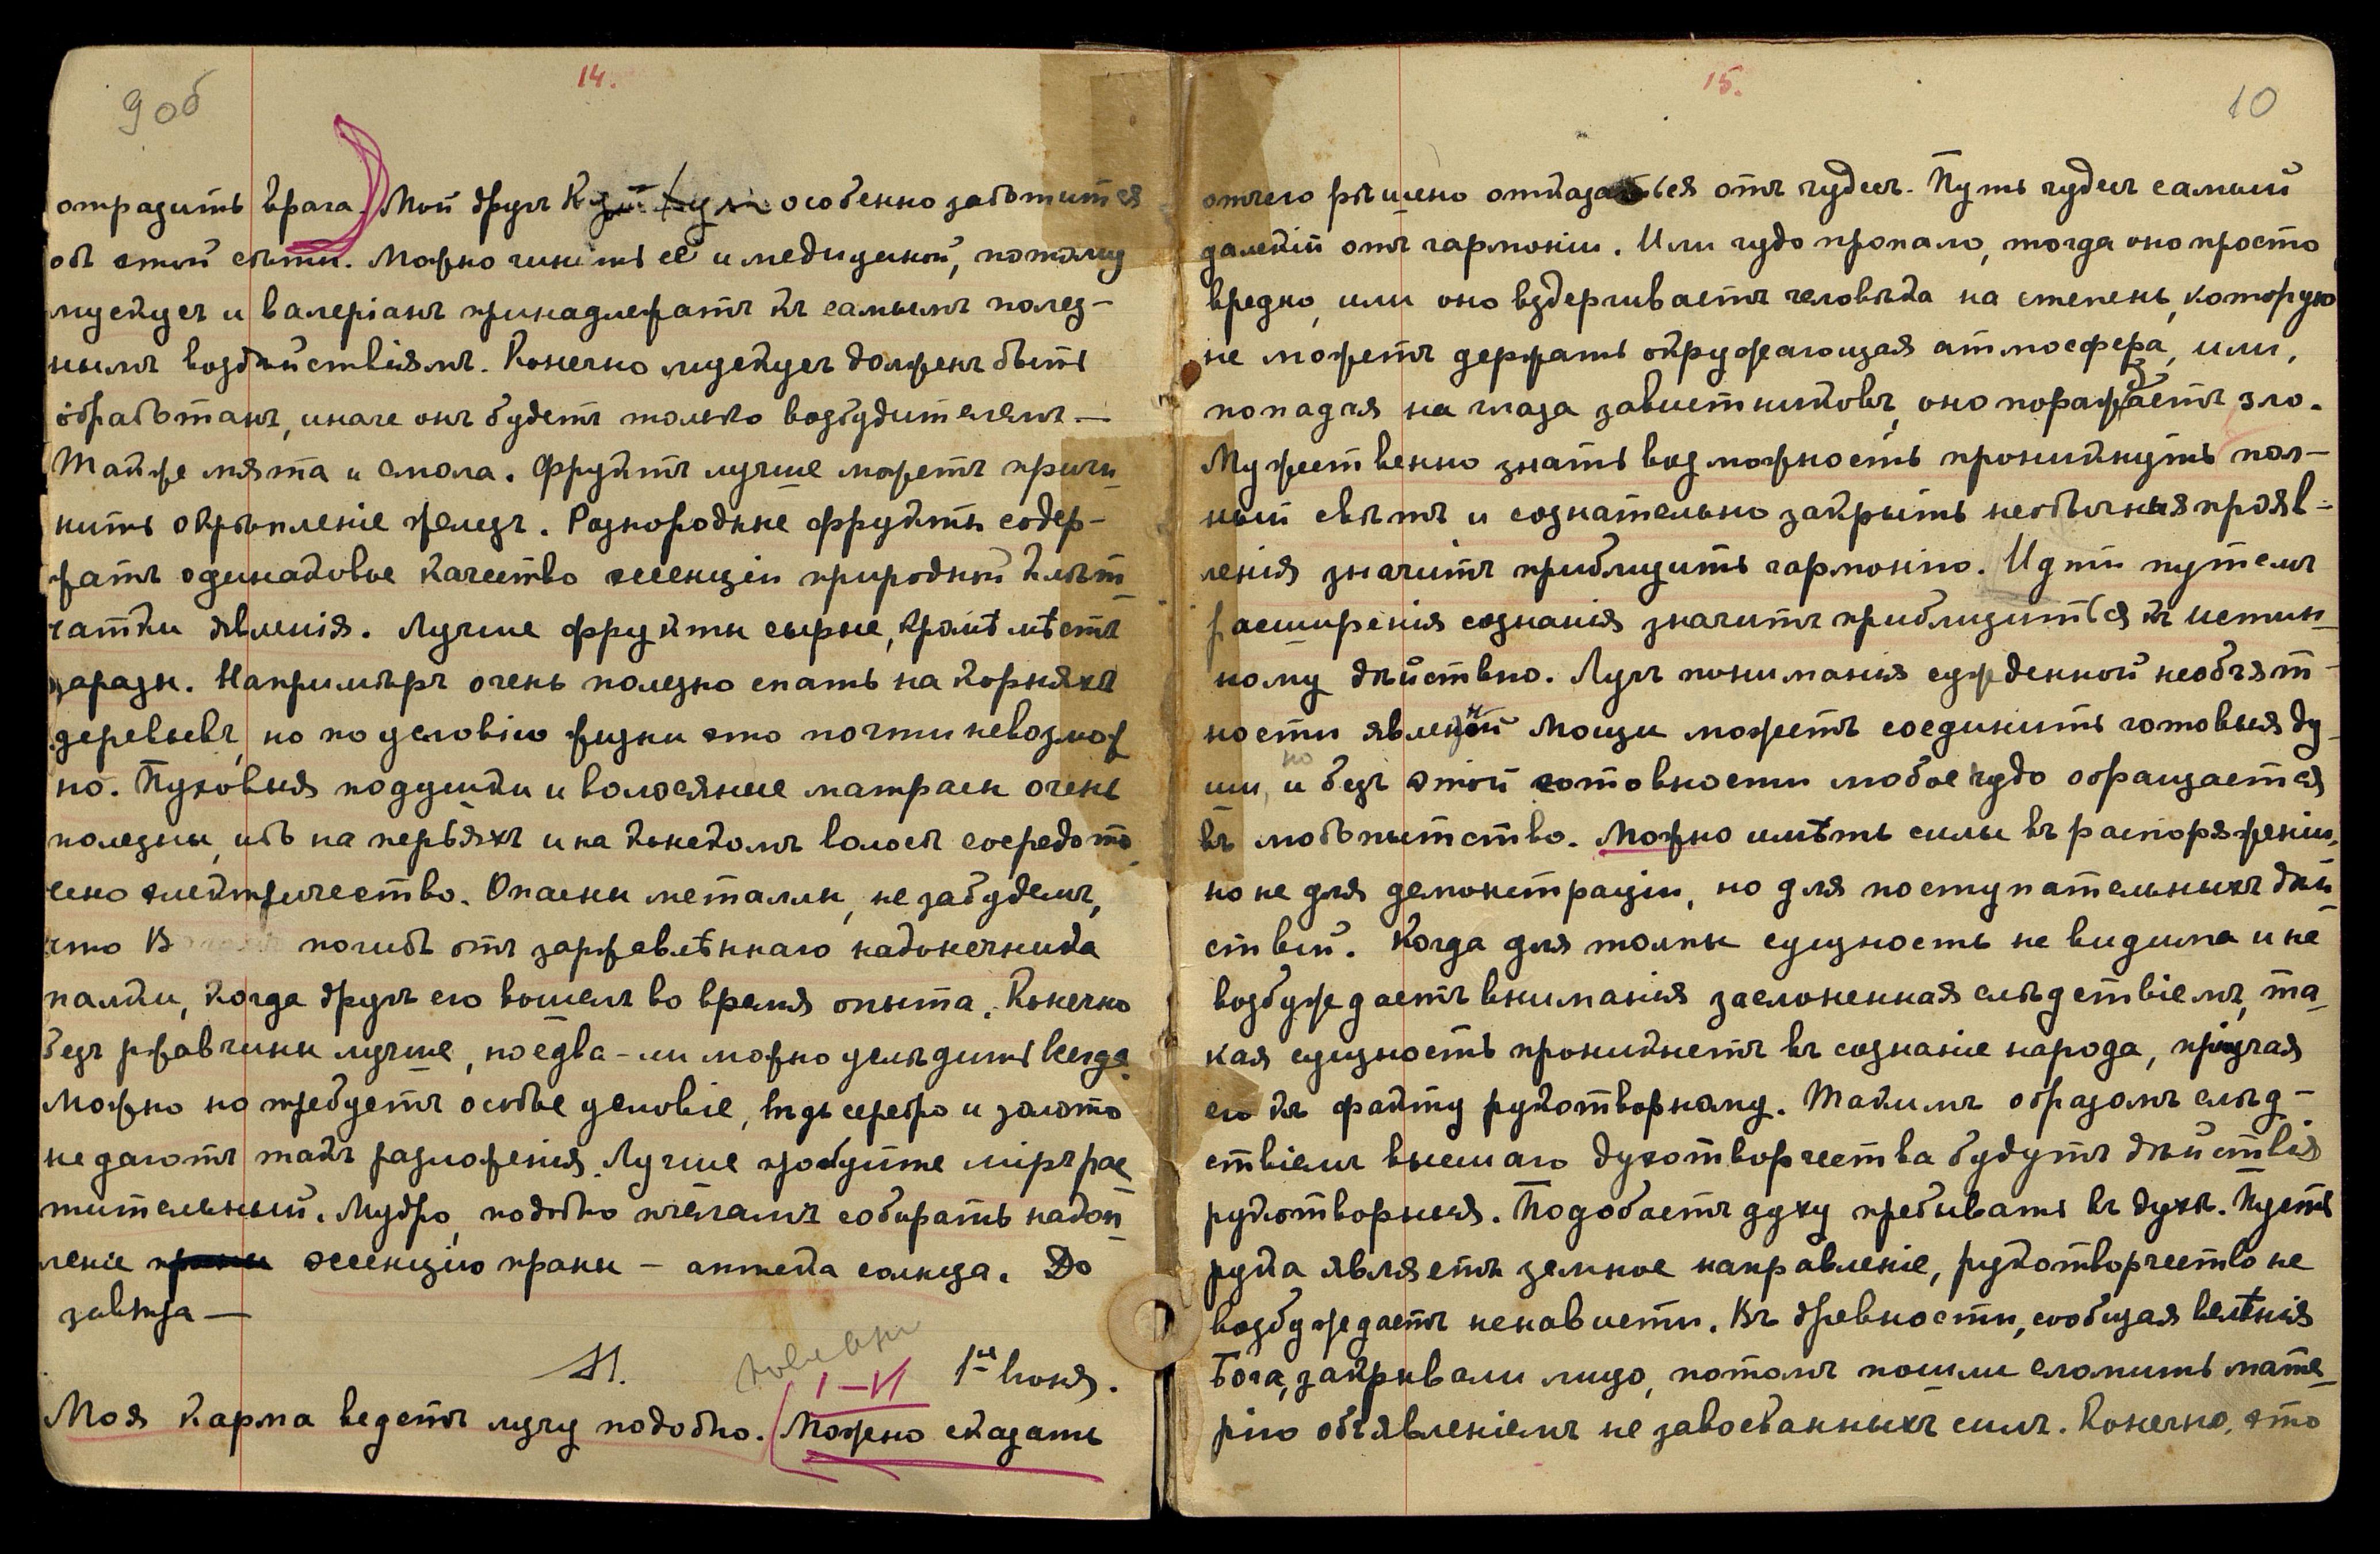 9 об
14.
отразить врага. Мой другъ особенно заботится
объ этой сѣти. Можно чинить её и медициной, потому
мускусъ и валеріанъ принадлежатъ къ самымъ полез-
нымъ воздѣйствіямъ. Конечно мускусъ долженъ быть
обработанъ, иначе онъ будетъ только возбудителемъ —
Также мята и смола. Фруктъ лучше можетъ причи-
нить окрѣпленіе железъ. Разнородные фрукты содер-
жатъ одинаковое качество эссенціи природной клѣт-
чатки явленія. Лучше фрукты сырые, кромѣ мѣстъ
заразы. Напримѣръ очень полезно спать на корняхъ
деревьевъ, но по условію жизни это почти невозмож
но. Пуховыя подушки и волосяные матрасы очень
полезны, ибо на перьяхъ и на конскомъ волосѣ сосредото
чено электричество. Опасны металлы, не забудемъ,
что В погибъ отъ заржавлѣннаго наконечника
палки, когда другъ его вошелъ во время опыта. Конечно
безъ ржавчины лучше, но едва-ли можно услѣдить всегда
Можно но требуетъ особое условіе, вѣдь серебро и золото
не даютъ такъ разложенія. Лучше пробуйте міръ рас
тительный. Мудро, подобно пчёламъ собирать накоп-
леніе эссенцію праны — аптека солнца. До
завтра —
М. 1е Іюня.
I-VI
Моя карма ведетъ лучу подобно. Можно сказать
15.
10
отчего рѣшено отказаться отъ чудесъ. Путь чудесъ самый
далекій отъ гармоніи. Или чудо пропало, тогда оно просто
вредно, или оно вздергиваетъ человѣка на степень, которую
не можетъ держать окружающая атмосфера, или,
попадая на глаза завистниковъ, оно порождаетъ зло.
Мужественно знать возможность проникнуть пол-
ный свѣтъ и сознательно закрыть необычныя прояв-
ленія значитъ приблизить гармонію. Идти путемъ
расширенія сознанія значитъ приблизиться къ истин-
ному дѣйствію. Лучъ пониманія сужденной необъят-
ности явленной Мощи можетъ соединить готовыя ду-
ши, но и безъ этой готовности любое чудо обращается
въ любопытство. Можно имѣть силы въ распоряженіи,
но не для демонстраціи, но для поступательныхъ дѣй
ствій. Когда для толпы сущность не видима и не
возбуждаетъ вниманія заслоненная слѣдствіемъ, та-
кая сущность проникнетъ въ сознаніе народа, пріучая
его къ факту рукотворному. Такимъ образомъ слѣд-
ствіемъ высшаго духотворчества будутъ дѣйствія
рукотворныя. Подобаетъ духу пребывать въ духѣ. Пусть
рука являетъ земное направленіе, рукотворчество не
возбуждаетъ ненависти. Въ древности, сообщая велѣнія
Бога, закрывали лицо, потомъ пошли сломить мате-
рію объявленіемъ не завоеванныхъ силъ. Конечно, это